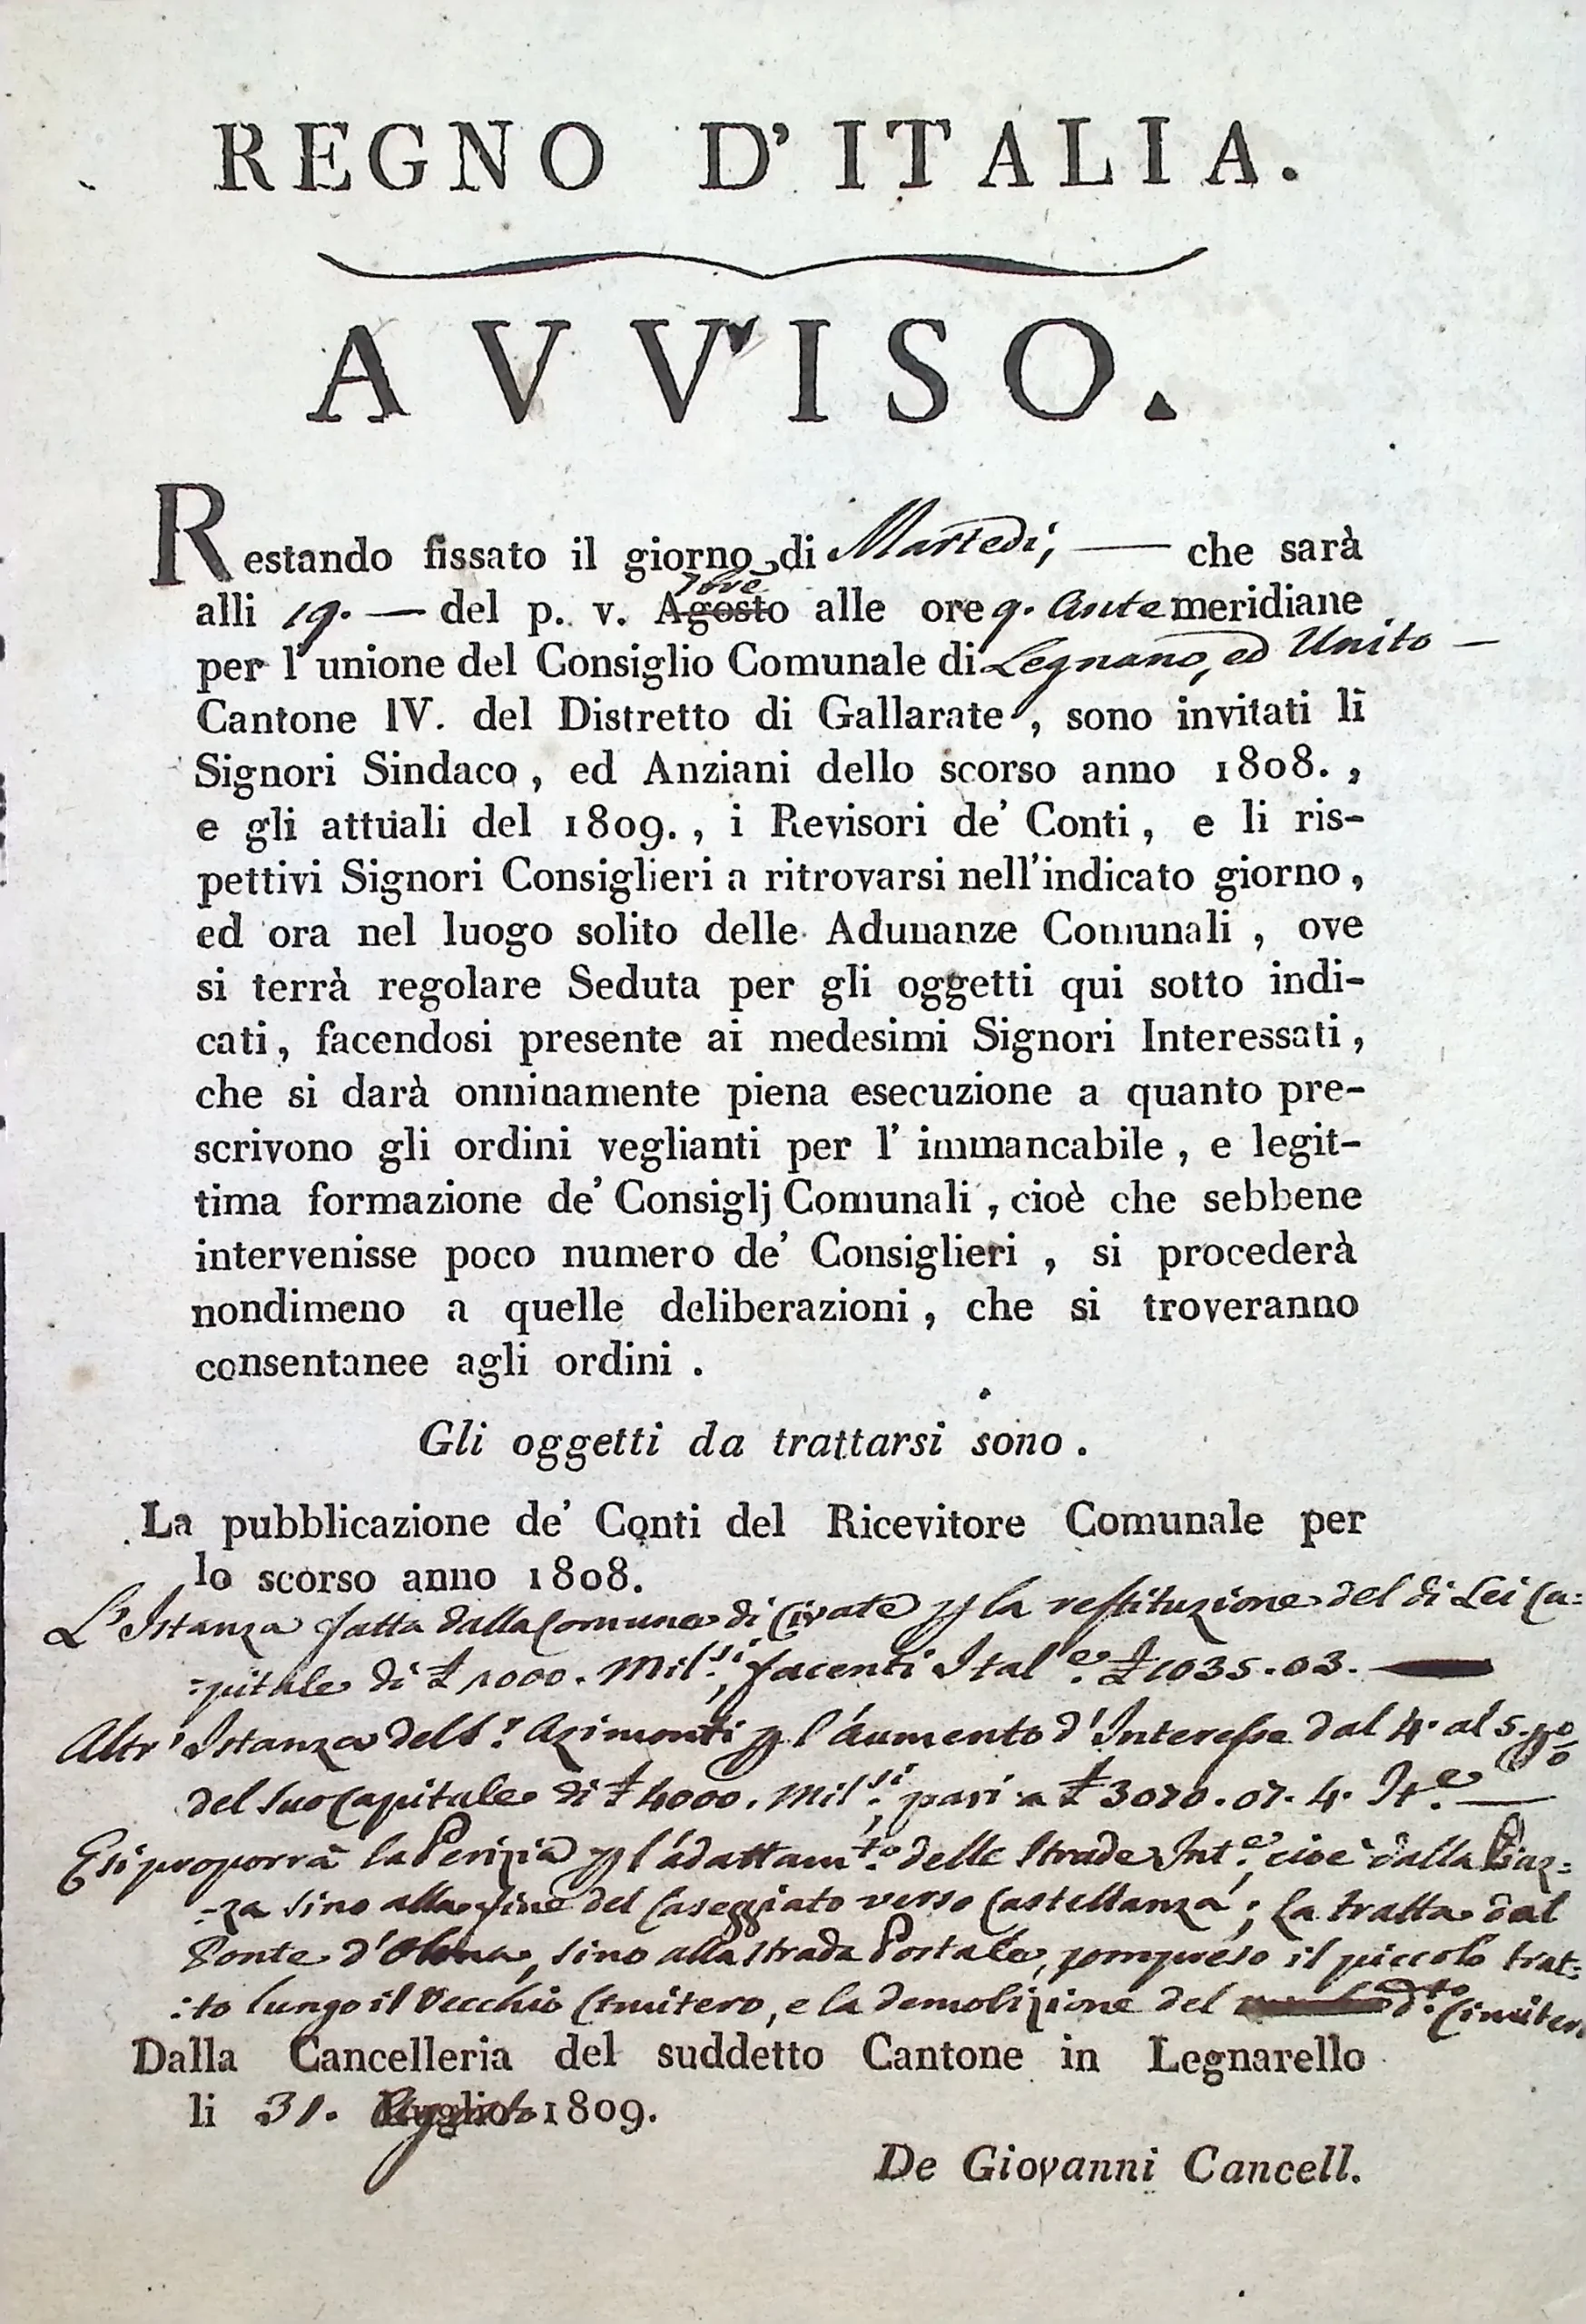 REGNO D'ITALIA.
AVVISO.
Restando fissato il giorno di Martedì, — che sarà
7bre
alli 19. — del p. v. Agosto alle ore 9. Antemeridiane
per l'unione del Consiglio Comunale di Legnano, ed Unito —
Cantone IV. del Distretto di Gallarate, sono invitati li
Signori Sindaco, ed Anziani dello scorso anno 1808.,
e gli attuali del 1809., i Revisori de' Conti, e li ris-
pettivi Signori Consiglieri a ritrovarsi nell'indicato giorno,
ed ora nel luogo solito delle Adunanze Comunali, ove
si terrà regolare Seduta per gli oggetti qui sotto indi-
cati, facendosi presente ai medesimi Signori Interessati,
che si darà onninamente piena esecuzione a quanto pre-
scrivono gli ordini veglianti per l'immancabile, e legit-
tima formazione de' Consiglj Comunali, cioè che sebbene
intervenisse poco numero de' Consiglieri, si procederà
nondimeno a quelle deliberazioni, che si troveranno
consentanee agli ordini.
Gli oggetti da trattarsi sono.
La pubblicazione de' Conti del Ricevitore Comunale per
lo scorso anno 1808.
L'Istanza fatta dalla Comune di Civate p la restituzione del di Lei Ca:
:pitale di £ 1000. Mil.si, facenti Ital.e £ 1035.03.
Altr'Istanza del S.r Azimonti p l'aumento d'Interesse dal 4. al 5. p%
del suo Capitale di £ 4000. Mil.si, pari a £ 3070.07.4. It.e —
E si proporrà la Perizia p l'adattam.to delle Strade Int.e, cioè dalla Piaz:
:za sino alla fine del Caseggiato verso Castellanza; la tratta dal
Ponte d'Olona, sino alla Strada Postale, compreso il piccolo trat:
:to lungo il Vecchio Cimitero, e la demolizione del d.to Cimitero
Dalla Cancelleria del suddetto Cantone in Legnarello
li 31. Luglio 1809.
De Giovanni Cancell.